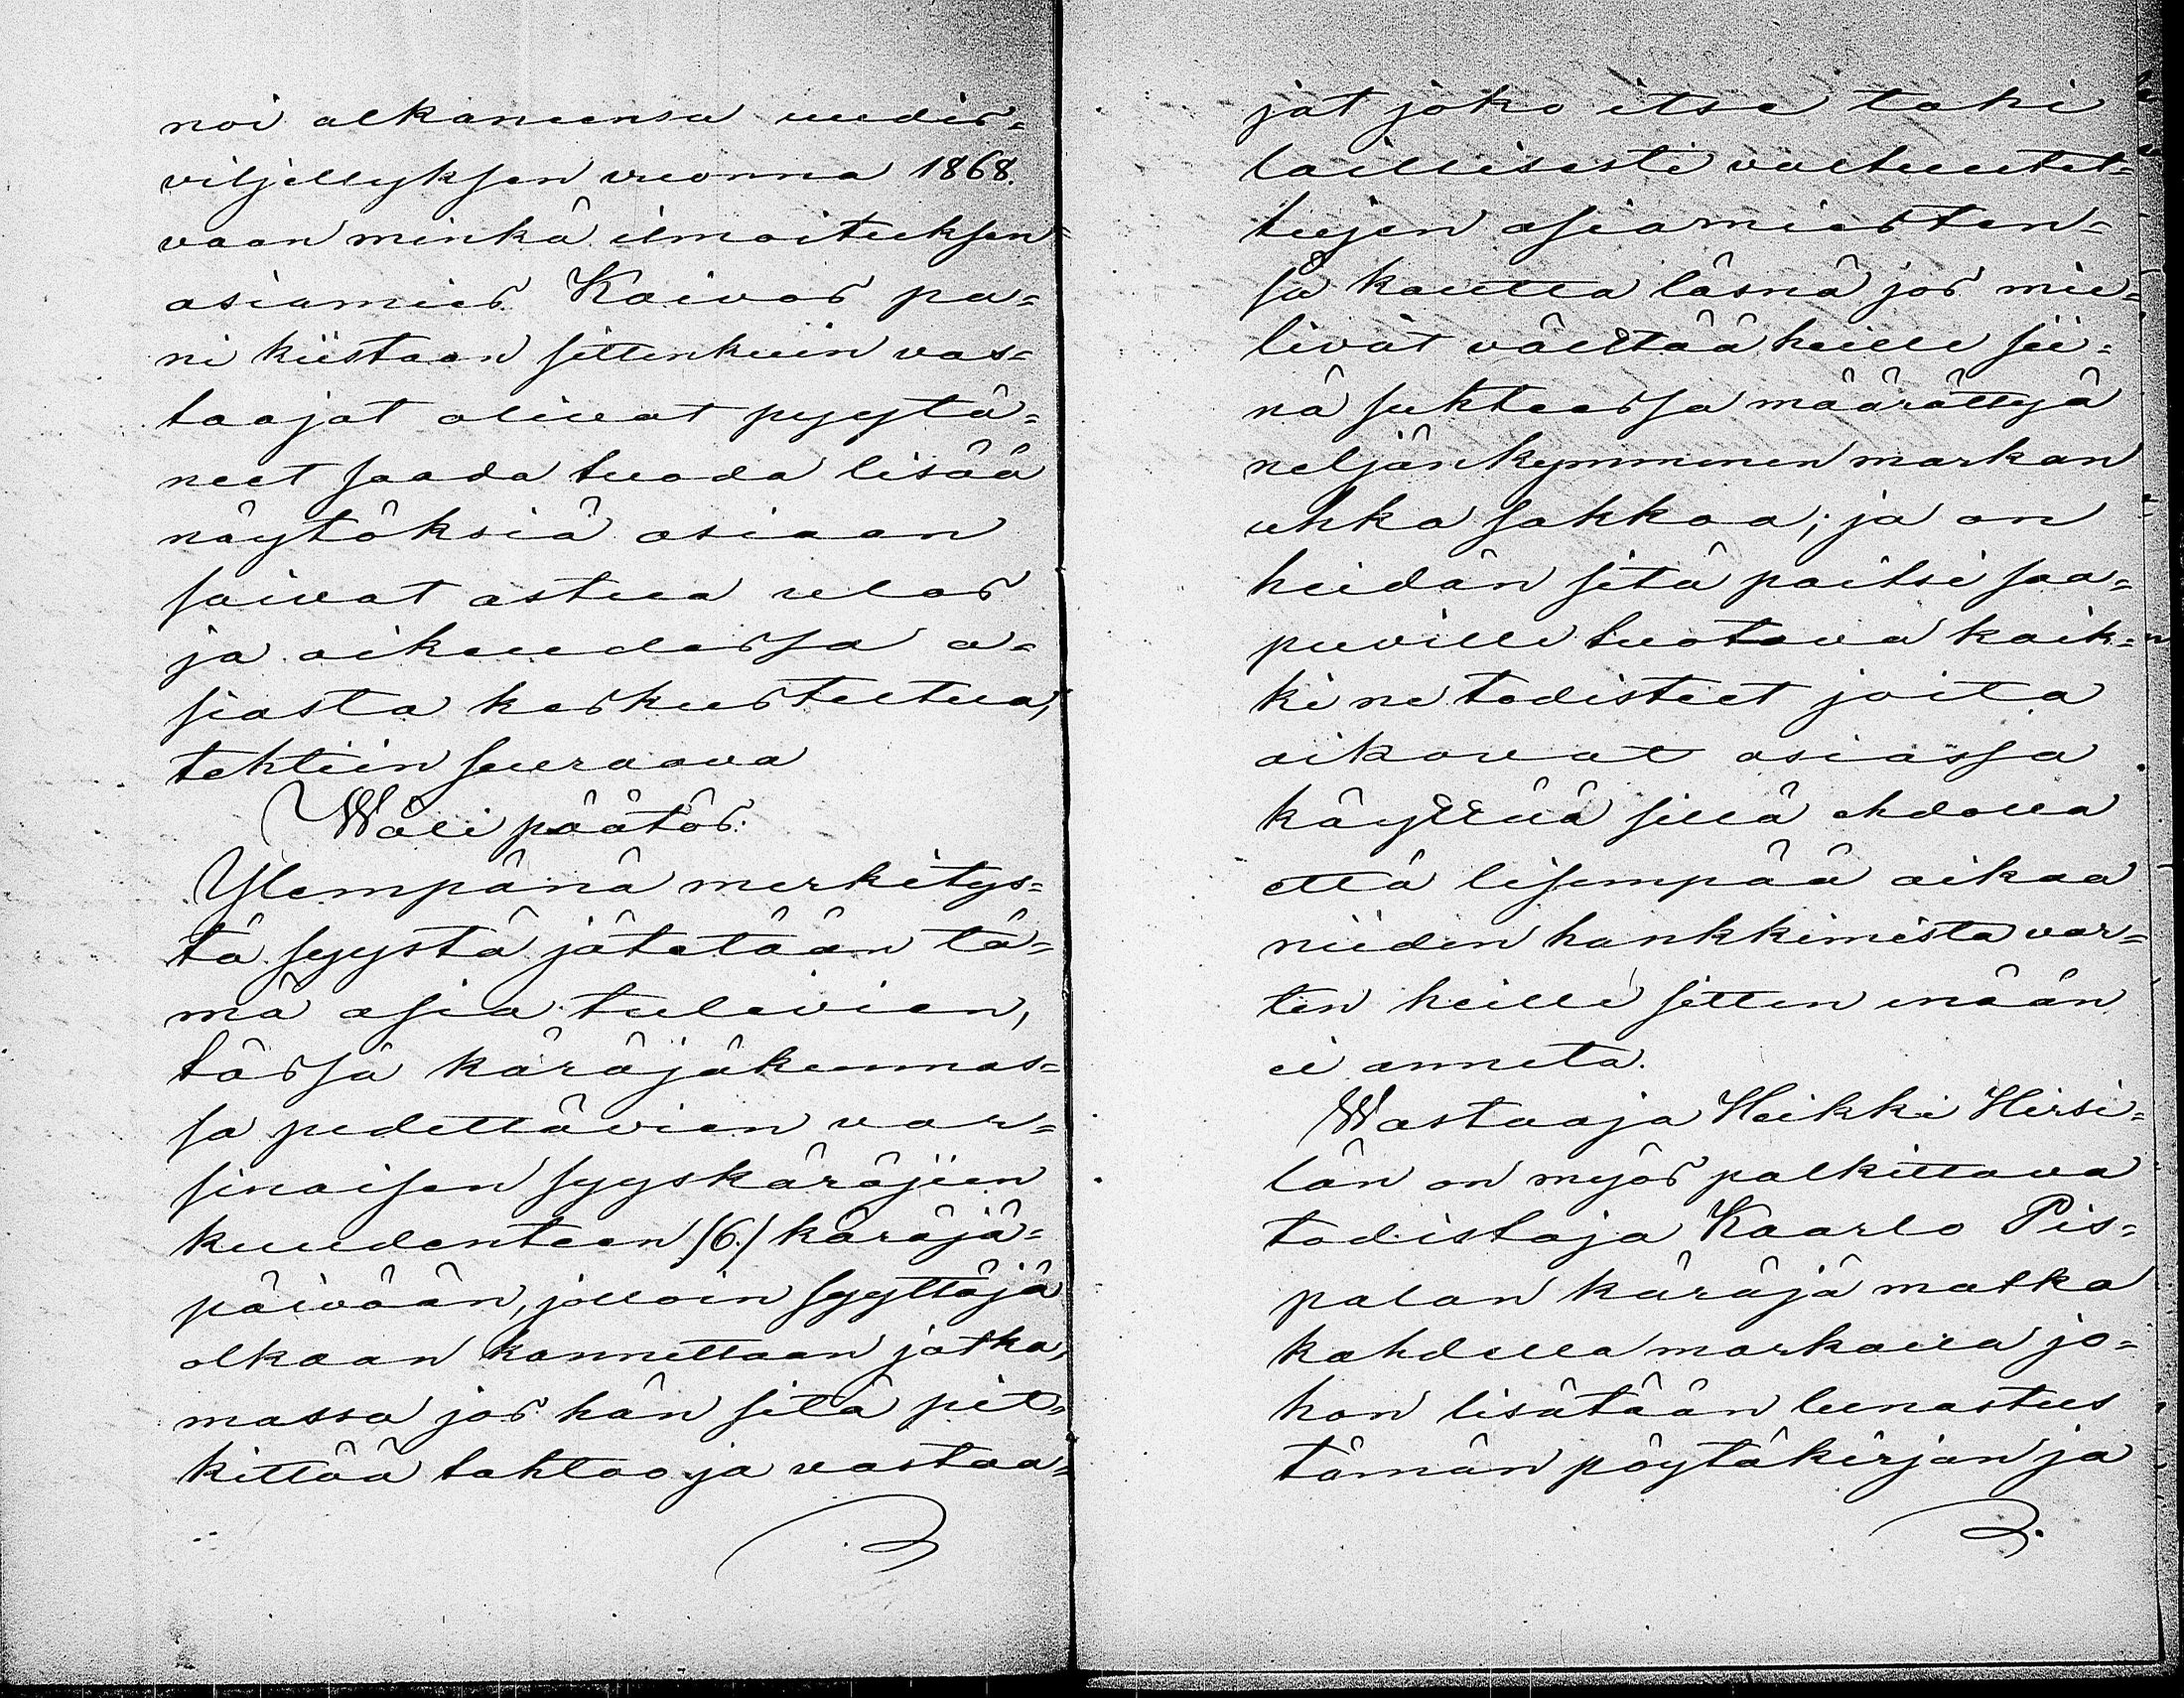 noi alkaneensa uudis=
viljellyksen vuonna 1868.
vaan minkä ilmoituksen
asiamies Kaivos pa=
ni kiistaan sittenkuin vas=
taajat olivat pyytä=
neet saada tuoda lisää
näytöksiä asiaan
saivat astua ulos
ja oikeudessa a=
siasta keskusteltua,
tehtiin seuraava
Wäli päätös:
Ylempänä merkitys=
tä syystä jätetään tä=
mä asia tulevien,
tässä käräjäkunnas=
sa pidettävien var=
sinaisen syyskäräjien
kuudenteen /6./ käräjä=
päivään, jolloin syyttäjä
olkaan kannettaan jatka,
massa jos hän sitä pit=
kittää tahtoo ja vastaa=
jat joko itse tahi
laillisesti valtuutet=
tujen asiamiesten=
sä kautta läsnä jos mie=
livät välttää heille sii=
nä suhteessa määrättyä
neljänkymmenen markan
uhka sakkoa; ja on
heidän sitä paitsi saa=
puville tuotava kaik=
ki ne todisteet joita
aikovat asiassa
käyttää sillä ehdolla
että lisempää aikaa
niiden hankkimista var=
ten heille sitten enään
ei anneta.
Wastaaja Heikki Hirsi=
län on myös palkittava
todistaja Kaarlo Pis=
palan käräjä matka
kahdella markalla jo=
hon lisätään lunastus
tämän pöytäkirjan ja